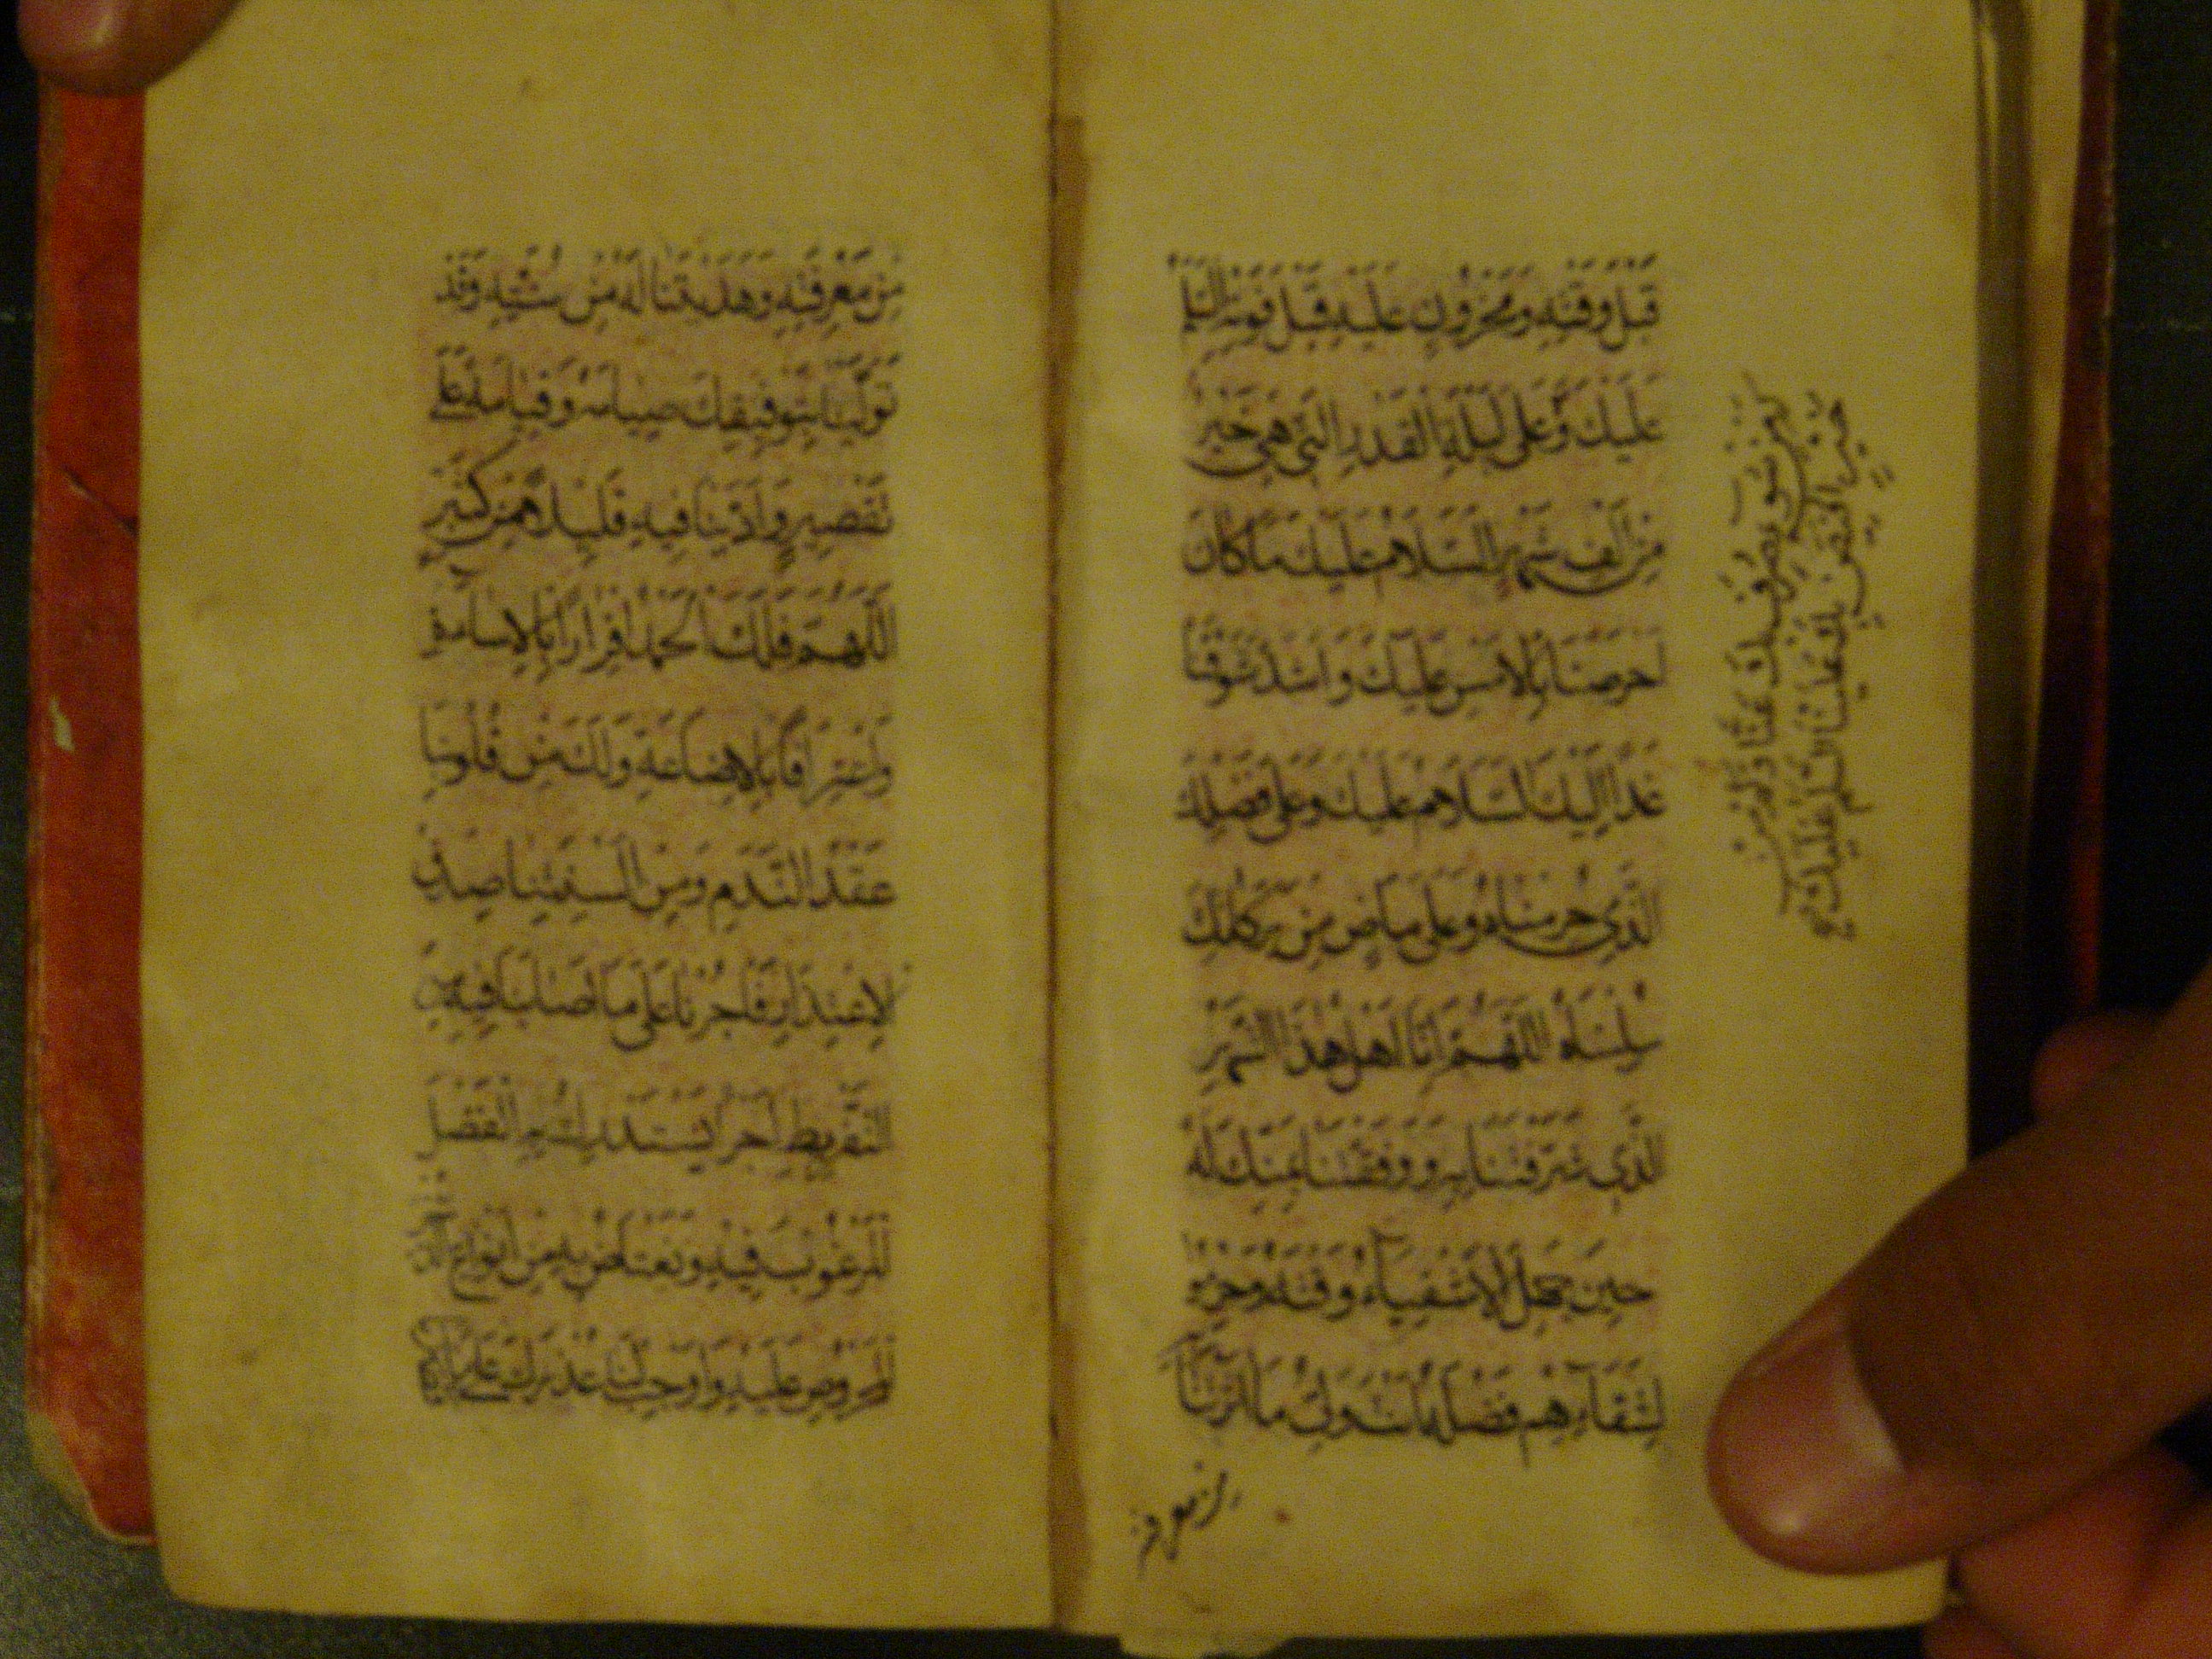 قَبْلَ وَقْتِهِ وَمَحْزُونٍ عَلَيْهِ قَبْلَ فَوْتِهِ السَّلَامُ
عَلَيْكَ وَعَلَى لَيْلَةِ الْقَدْرِ الَّتِي هِيَ خَيْرٌ
مِنْ أَلْفِ شَهْرٍ السَّلَامُ عَلَيْكَ مَا كَانَ
أَحْرَصَنَا بِالْأَمْسِ عَلَيْكَ وَأَشَدَّ شَوْقَنَا
غَدًا إِلَيْكَ السَّلَامُ عَلَيْكَ وَعَلَى فَضْلِكَ
الَّذِي حُرِمْنَاهُ وَعَلَى مَاضٍ مِنْ بَرَكَاتِكَ
سُلِبْنَاهُ اللَّهُمَّ إِنَّا أَهْلُ هَذَا الشَّهْرِ
الَّذِي شَرَّفْتَنَا بِهِ وَوَفَّقْتَنَا بِمَنِّكَ لَهُ
حِينَ جَهِلَ الْأَشْقِيَاءُ وَقْتَهُ وَحُرِمُوا
لِشَقَائِهِمْ فَضْلَهُ أَنْتَ وَلِيُّ مَا آثَرْتَنَا
من معرفته
كم من سوء صرف بك عنا وكم من
خير افيض بك علينا السلام عليك
مِنْ مَعْرِفَتِهِ وَهَدَيْتَنَا لَهُ مِنْ سُنَّتِهِ وَقَدْ
تَوَلَّيْنَا بِتَوْفِيقِكَ صِيَامَهُ وَقِيَامَهُ عَلَى
تَقْصِيرٍ وَأَدَّيْنَا فِيهِ قَلِيلًا مِنْ كَثِيرٍ
اللَّهُمَّ فَلَكَ الْحَمْدُ إِقْرَارًا بِالْإِسَاءَةِ
وَاعْتِرَافًا بِالْإِضَاعَةِ وَلَكَ مِنْ قُلُوبِنَا
عَقْدُ النَّدَمِ وَمِنْ أَلْسِنَتِنَا صِدْقُ
الِاعْتِذَارِ فَأْجُرْنَا عَلَى مَا أَصَابَنَا فِيهِ مِنَ
التَّفْرِيطِ أَجْرًا نَسْتَدْرِكُ بِهِ الْفَضْلَ
الْمَرْغُوبَ فِيهِ وَنَعْتَاضُ بِهِ مِنْ أَنْوَاعِ الذُّخْرِ
الْمَحْرُوصِ عَلَيْهِ وَأَوْجِبْ لَنَا عُذْرَكَ عَلَى مَا